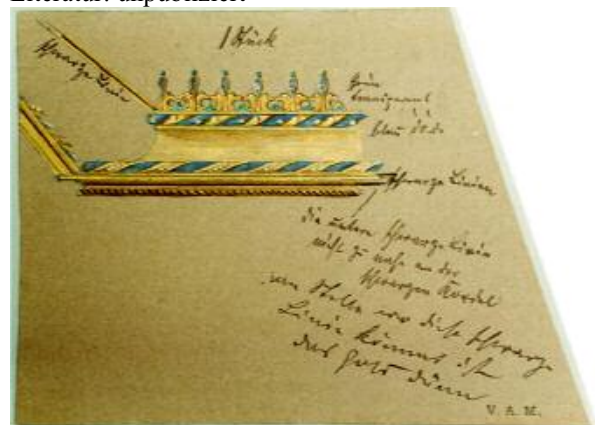 Literatur: unpubliziert
1 Stück
schwarze Linie
grün
transparent
blau do.
schwarze Linien
die untere schwarze Linie
nicht zu nahe an der
schwarzen Kordel
an Stelle wo diese schwarze
Linie kommt ist
das Holz dünn
V. A. M.